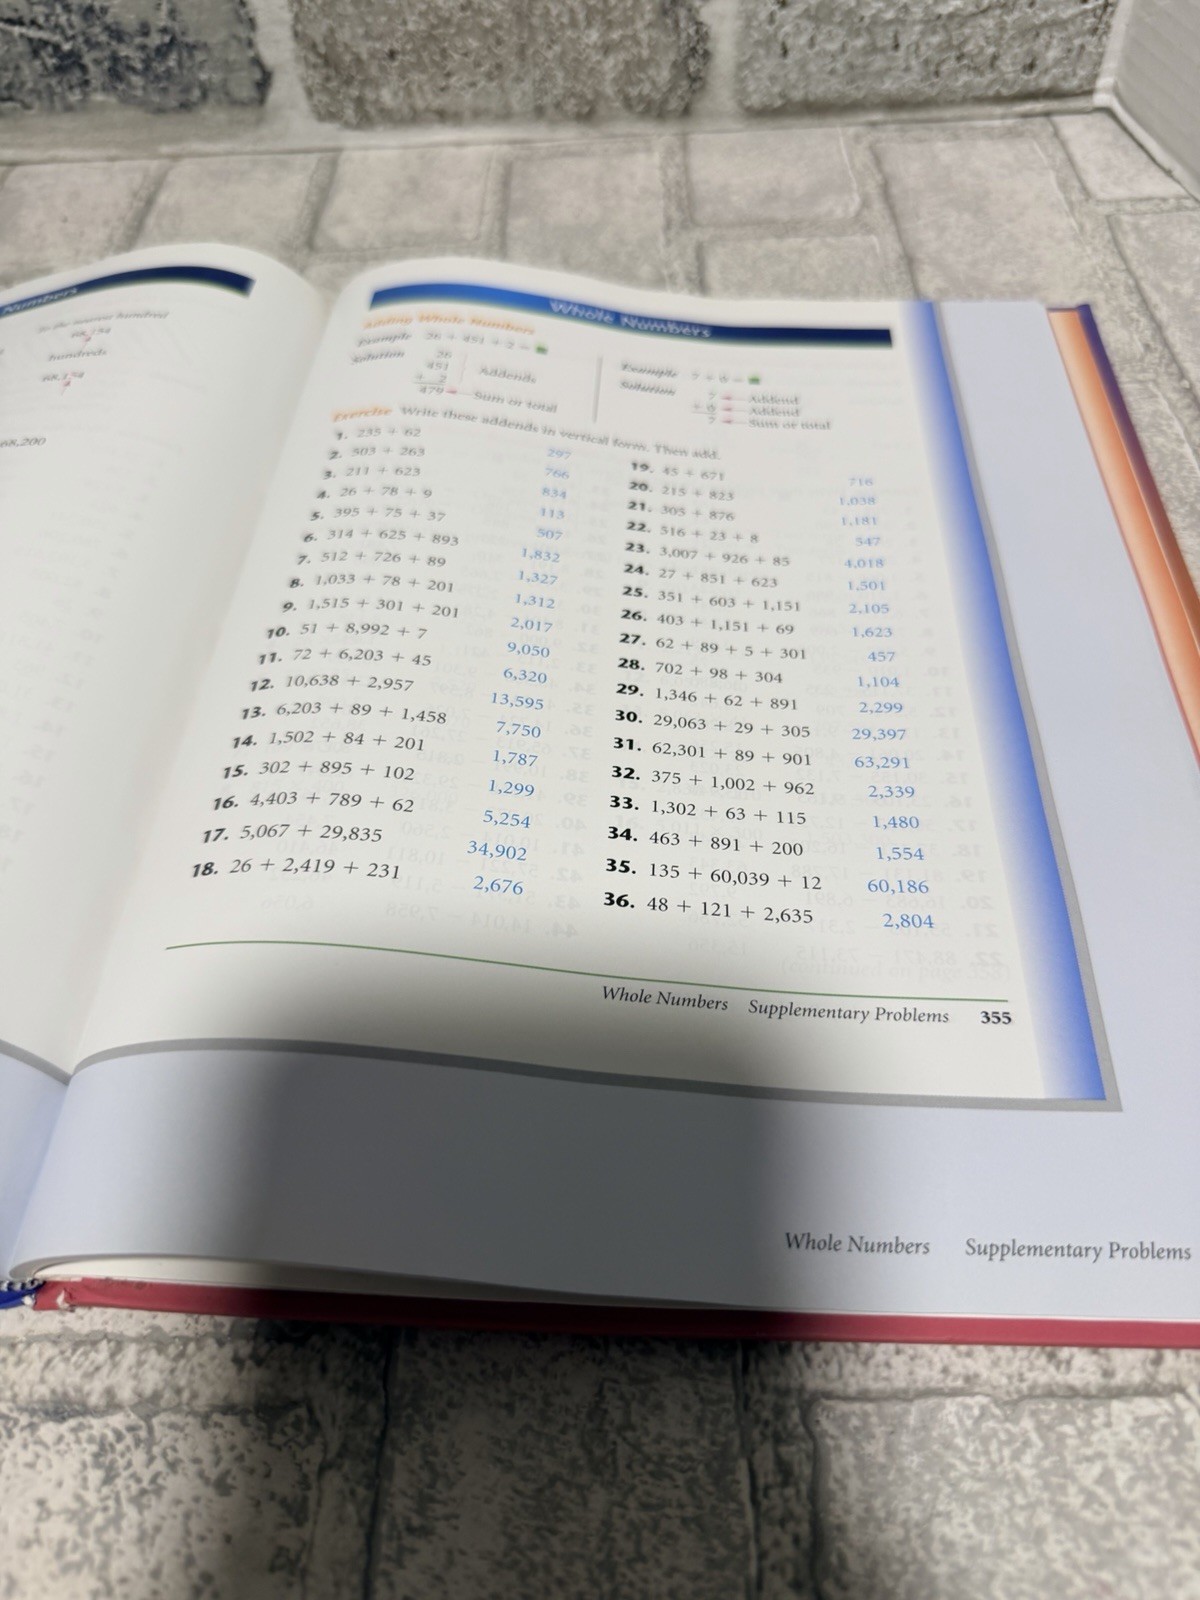 Numbers
to the nearest hundred
68,154
hundreds
68,154
68,200
Whole Numbers
Adding Whole Numbers
Example 26 + 451 + 2 =
Solution 26
451
+ 2
479
Addends
Sum or total
Example 7 + 0 =
Solution 7 Addend
+ 0 Addend
7 Sum or total
Exercise Write these addends in vertical form. Then add.
1. 235 + 62 297
2. 503 + 263 766
3. 211 + 623 834
4. 26 + 78 + 9 113
5. 395 + 75 + 37 507
6. 314 + 625 + 893 1,832
7. 512 + 726 + 89 1,327
8. 1,033 + 78 + 201 1,312
9. 1,515 + 301 + 201 2,017
10. 51 + 8,992 + 7 9,050
11. 72 + 6,203 + 45 6,320
12. 10,638 + 2,957 13,595
13. 6,203 + 89 + 1,458 7,750
14. 1,502 + 84 + 201 1,787
15. 302 + 895 + 102 1,299
16. 4,403 + 789 + 62 5,254
17. 5,067 + 29,835 34,902
18. 26 + 2,419 + 231 2,676
19. 45 + 671 716
20. 215 + 823 1,038
21. 305 + 876 1,181
22. 516 + 23 + 8 547
23. 3,007 + 926 + 85 4,018
24. 27 + 851 + 623 1,501
25. 351 + 603 + 1,151 2,105
26. 403 + 1,151 + 69 1,623
27. 62 + 89 + 5 + 301 457
28. 702 + 98 + 304 1,104
29. 1,346 + 62 + 891 2,299
30. 29,063 + 29 + 305 29,397
31. 62,301 + 89 + 901 63,291
32. 375 + 1,002 + 962 2,339
33. 1,302 + 63 + 115 1,480
34. 463 + 891 + 200 1,554
35. 135 + 60,039 + 12 60,186
36. 48 + 121 + 2,635 2,804
Whole Numbers Supplementary Problems 355
Whole Numbers Supplementary Problems